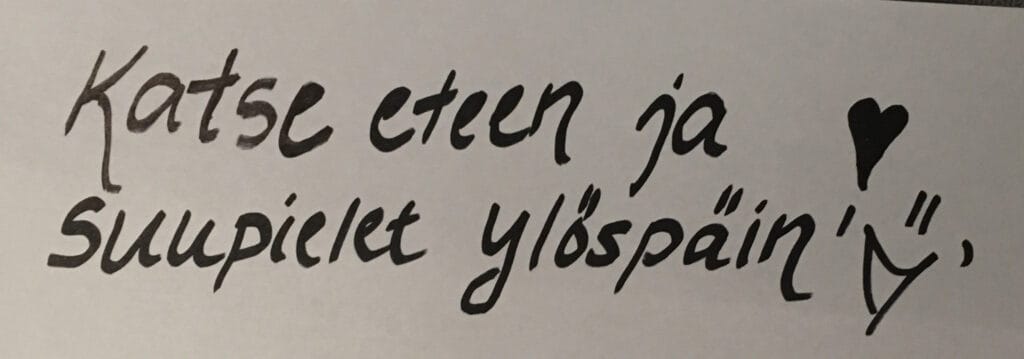 Katse eteen ja
suupielet ylöspäin